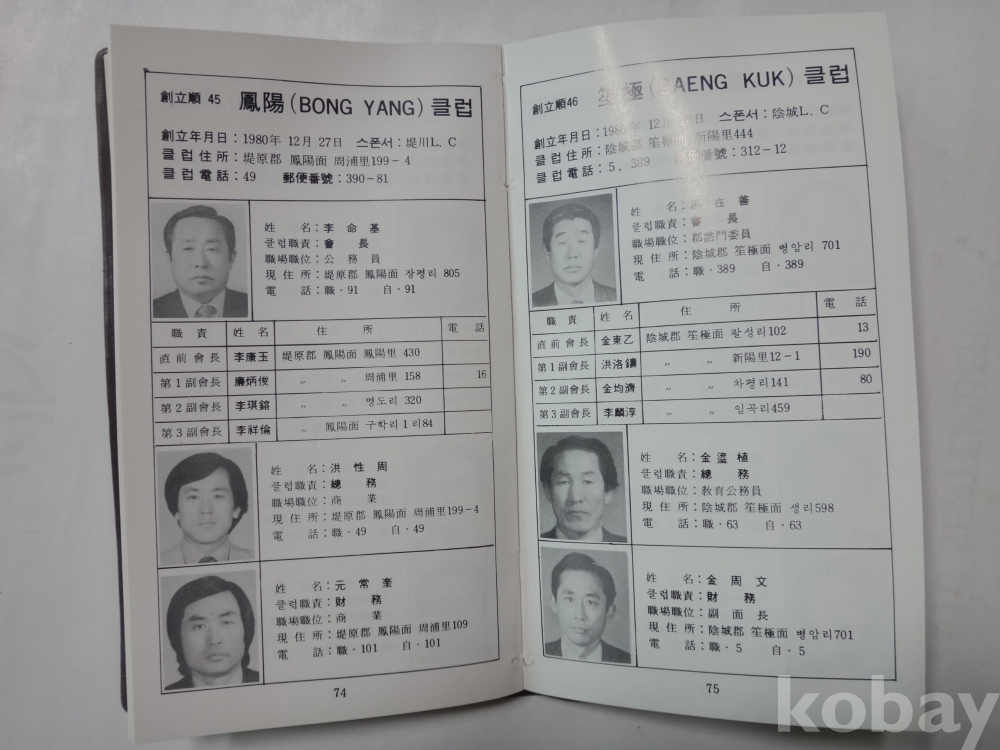 創立順 45 鳳陽 (BONG YANG) 클럽
創立年月日 : 1980年 12月 27日 스폰서 : 堤川L. C
클럽住所 : 堤原郡 鳳陽面 周浦里199-4
클럽電話 : 49 郵便番號 : 390-81
姓 名 : 李 命 基
클럽職責 : 會 長
職場職位 : 公 務 員
現 住 所 : 堤原郡 鳳陽面 장평리 805
電 話 : 職·91 自·91
職 責 姓 名 住 所 電 話
直前會長 李康玉 堤原郡 鳳陽面 鳳陽里 430
第1副會長 廉炳俊 〃 〃 周浦里 158 16
第2副會長 李琪鎔 〃 〃 명도리 320
第3副會長 李祥倫 〃 鳳陽面 구학리 1리84
姓 名 : 洪 性 周
클럽職責 : 總 務
職場職位 : 商 業
現 住 所 : 堤原郡 鳳陽面 周浦里199-4
電 話 : 職·49 自·49
姓 名 : 元 常 奎
클럽職責 : 財 務
職場職位 : 商 業
現 住 所 : 堤原郡 鳳陽面 周浦里109
電 話 : 職·101 自·101
74
創立順46 笙極 (SAENG KUK) 클럽
創立年月日 : 12月 스폰서 : 陰城L. C
클럽住所 : 陰城郡 笙極面 新陽里444
클럽電話 : 5, 389 郵便番號 : 312-12
姓 名 : 在 善
클럽職責 : 會 長
職場職位 : 郡諮問委員
現 住 所 : 陰城郡 笙極面 병암리 701
電 話 : 職·389 自·389
職 責 姓 名 住 所 電 話
直前會長 金東乙 陰城郡 笙極面 팔성리102 13
第1副會長 洪洛鑄 〃 〃 新陽里12-1 190
第2副會長 金均濟 〃 〃 차평리141 80
第3副會長 李麟淳 〃 〃 임곡리459
姓 名 : 金 植
클럽職責 : 總 務
職場職位 : 教育公務員
現 住 所 : 陰城郡 笙極面 생리598
電 話 : 職·63 自·63
姓 名 : 金 周 文
클럽職責 : 財 務
職場職位 : 副 面 長
現 住 所 : 陰城郡 笙極面 병암리701
電 話 : 職·5 自·5
75
kobay